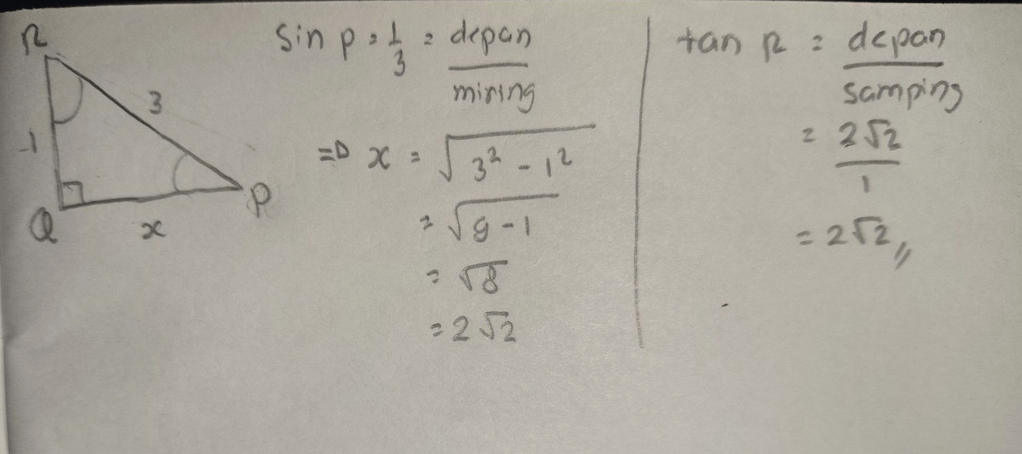 R
3
1
Q
x
P
sin p = 1/3 = depan/miring
=> x = √(3² - 1²)
= √(9 - 1)
= √8
= 2√2
tan R = depan/samping
= 2√2/1
= 2√2 //